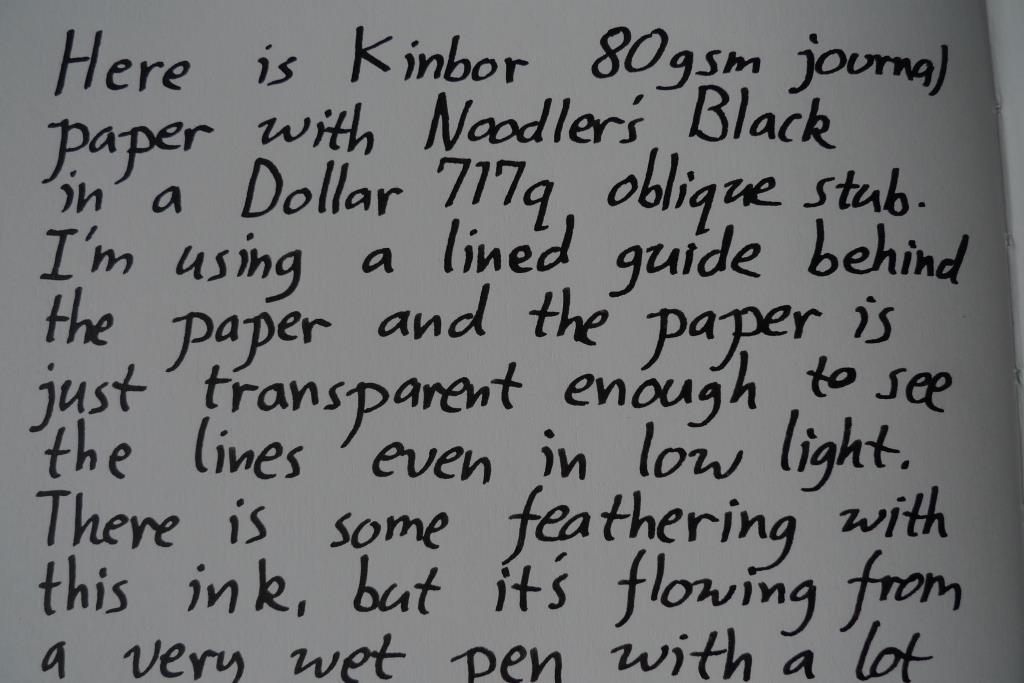 Here is Kinbor 80gsm journal
paper with Noodler's Black
in a Dollar 717q oblique stub.
I'm using a lined guide behind
the paper and the paper is
just transparent enough to see
the lines even in low light.
There is some feathering with
this ink, but it's flowing from
a very wet pen with a lot